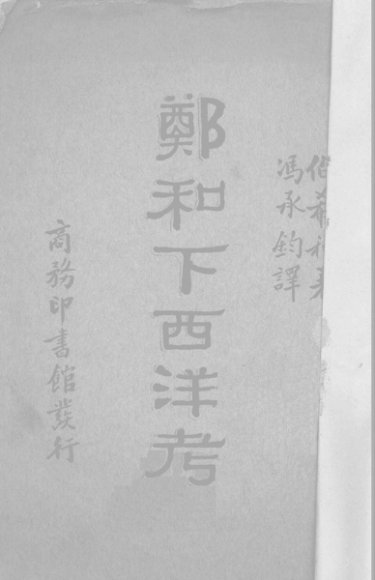 伯希和
馮承鈞譯
鄭和下西洋考
商務印書館發行